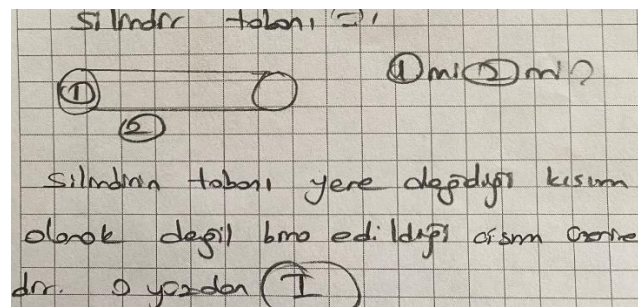 Silindir tabanı =?
① mi ② mi?
①
②
Silindirin tabanı yere değdiği kısım
olarak değil bina edildiği cisim üzerine
dir. O yüzden I